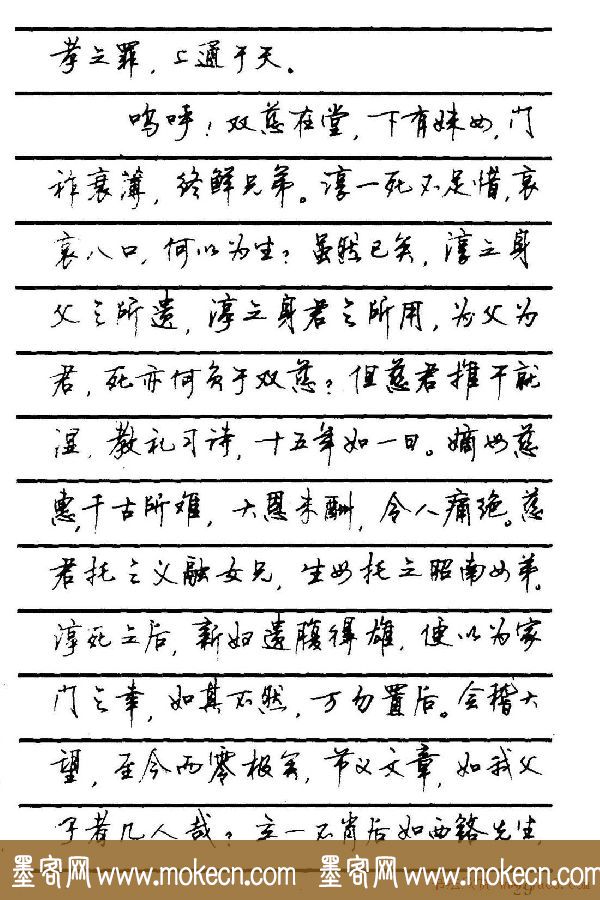 孝之罪,上通于天。
呜呼!双慈在堂,下有妹女,门
祚衰薄,终鲜兄弟。淳一死不足惜,哀
哀八口,何以为生?虽然已矣,淳之身
父之所遗,淳之身君之所用,为父为
君,死亦何负于双慈?但慈君推干就
湿,教礼习诗,十五年如一日。嫡母慈
惠,千古所难,大恩未酬,令人痛绝。慈
君托之义融女兄,生母托之昭南女弟。
淳死之后,新妇遗腹得雄,便以为家
门之幸,如其不然,万勿置后。会稽大
望,至今而零极矣,节义文章,如我父
子者几人哉?立一不肖后如西铭先生,
墨客网 www.mokecn.com 墨客网 www.mokecn.com